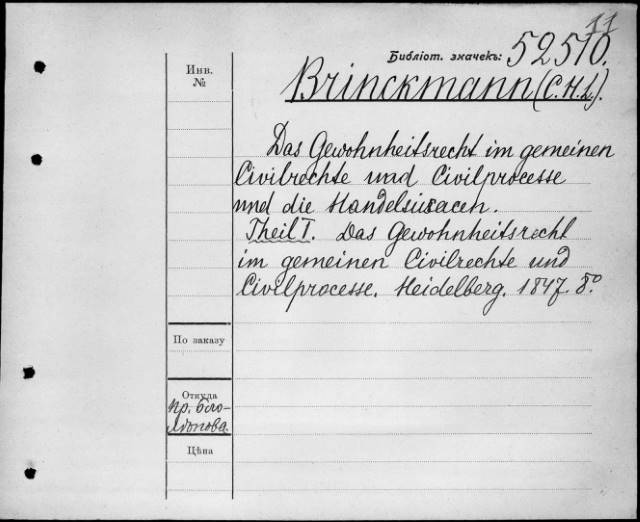 11
Библіот. значекъ: 52510.
Инв.
№
Brinckmann (C.H.L.).
Das Gewohnheitsrecht im gemeinen
Civilrechte und Civilprocesse
und die Handelsusacen.
Theil I. Das Gewohnheitsrecht
im gemeinen Civilrechte und
Civilprocesse. Heidelberg. 1847. 8°
По заказу
Откуда
пр.
Цѣна